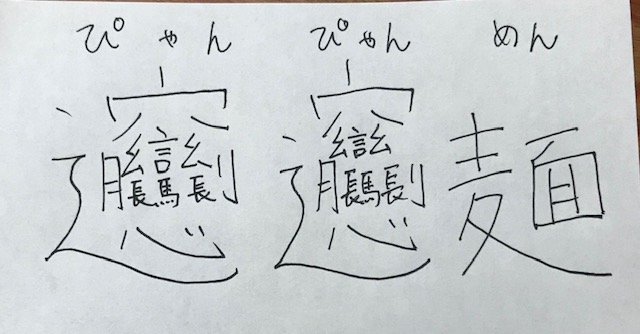 ぴゃん ぴゃん めん
𰻞𰻞麺